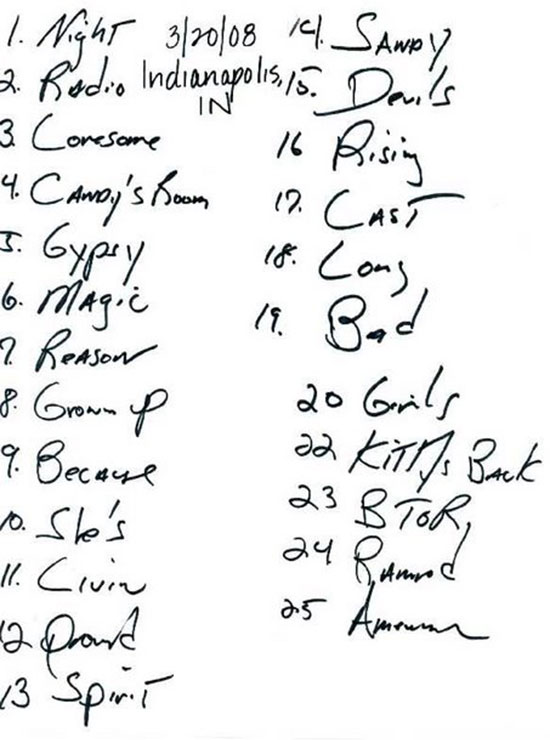 3/20/08
Indianapolis,
IN
1. Night
2. Radio
3 Lonesome
4. Candy's Room
5. Gypsy
6. Magic
7. Reason
8. Grown up
9. Because
10. She's
11. Livin
12
13 Spirit
14. Sandy
15. Devils
16 Rising
17. Last
18. Long
19. Bad
20 Girls
22 Kittys Back
23 BToR,
24 Ramrod
25 American